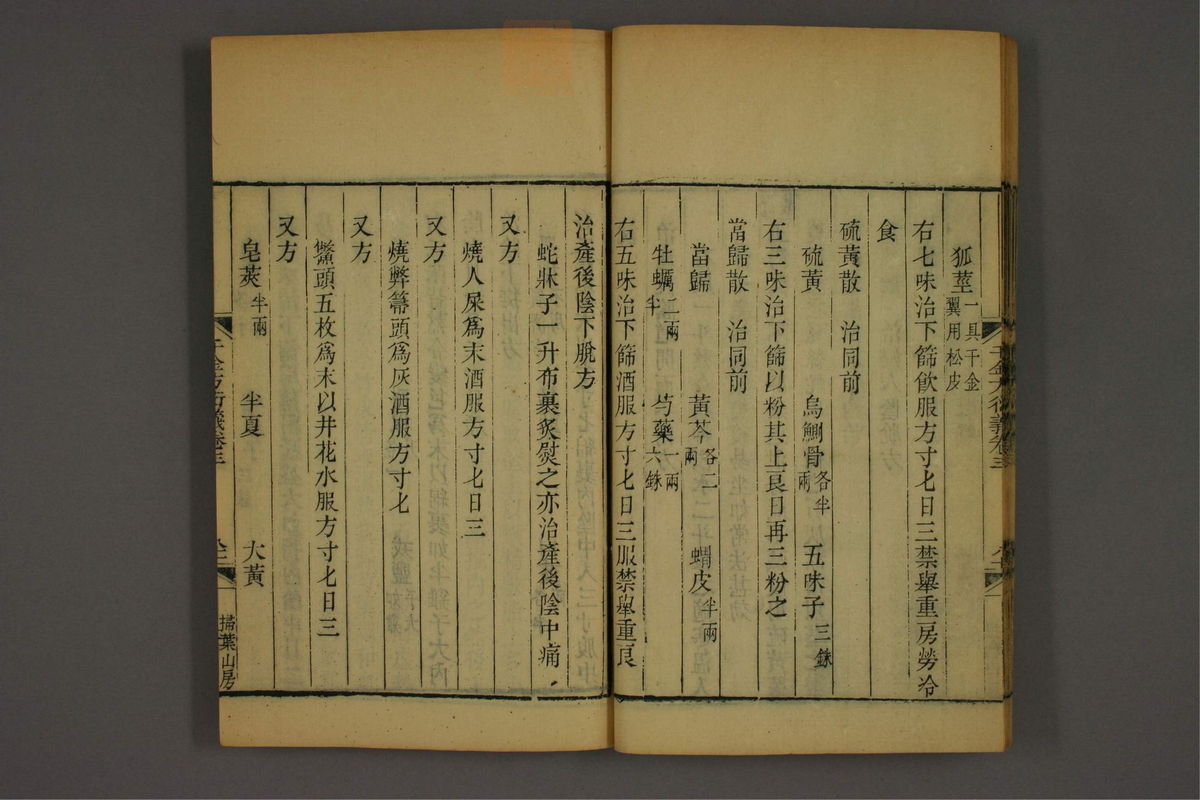 狐莖一具千金翼用松皮
右七味治下篩飲服方寸匕日三禁舉重房勞冷
食
硫黃散　治同前
硫黃　烏鰂骨各半兩　五味子三銖
右三味治下篩以粉其上良日再三粉之
當歸散　治同前
當歸　黃芩各二兩　蝟皮半兩
牡蠣二兩半　芍藥一兩六銖
右五味治下篩酒服方寸匕日三服禁舉重良
治產後陰下脫方
蛇牀子一升布裹炙熨之亦治產後陰中痛
又方
燒人屎爲末酒服方寸匕日三
又方
燒弊箒頭爲灰酒服方寸匕
又方
鱉頭五枚爲末以井花水服方寸匕日三
又方
皂莢半兩　半夏　大黃
掃葉山房